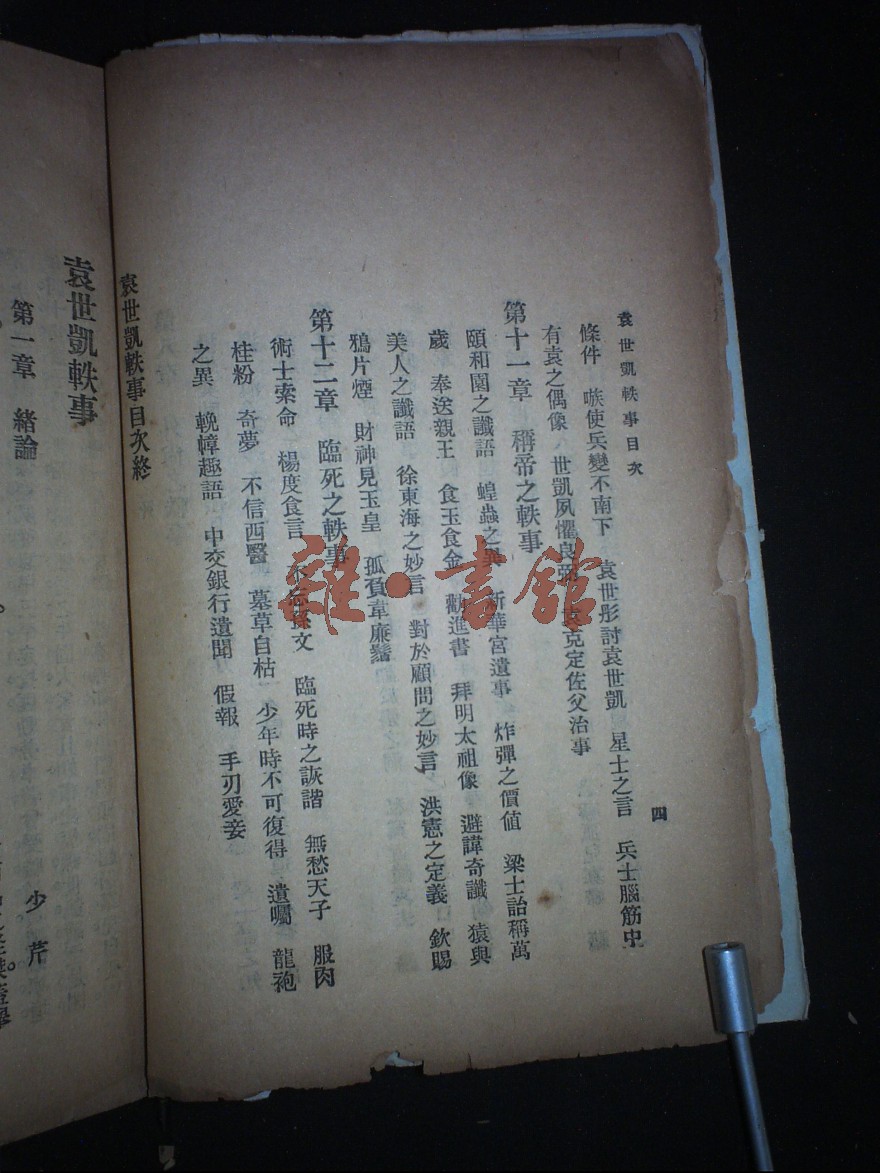 袁世凱軼事目次
四
條件　嗾使兵變不南下　袁世彤討袁世凱　星士之言　兵士腦筋中
有袁之偶像　世凱夙懼良弼　袁克定佐父治事
第十一章　稱帝之軼事
頤和園之讖語　蝗蟲之異　新華宮遺事　炸彈之價値　梁士詒稱萬
歲　奉送親王　食玉食金　勸進書　拜明太祖像　避諱奇讖　猿與
美人之讖語　徐東海之妙言　對於顧問之妙言　洪憲之定義　欽賜
鴉片煙　財神見玉皇　孤負韋廉鬚
第十二章　臨死之軼事
術士索命　楊度食言　不忘孫文　臨死時之詼諧　無愁天子　服肉
桂粉　奇夢　不信西醫　墓草自枯　少年時不可復得　遺囑　龍袍
之異　輓幛趣語　中交銀行遺聞　假報　手刃愛妾
袁世凱軼事目次終
袁世凱軼事
少芹
第一章　緒論
雜·書館